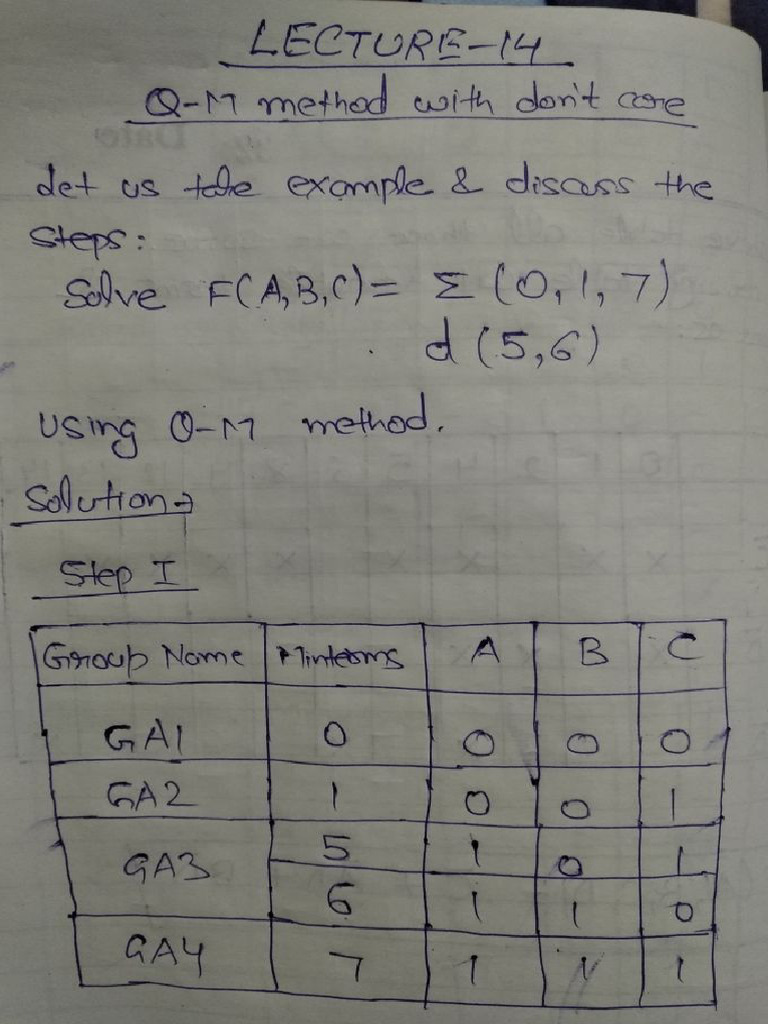 LECTURE-14
Q-M method with don't care
Let us take example & discuss the
steps:
Solve F(A,B,C) = Σ (0,1,7)
d (5,6)
Using Q-M method.
Solution→
Step I
Group Name Minterms A B C
GA1 0 0 0 0
GA2 1 0 0 1
GA3 5 1 0 1
6 1 1 0
GA4 7 1 1 1